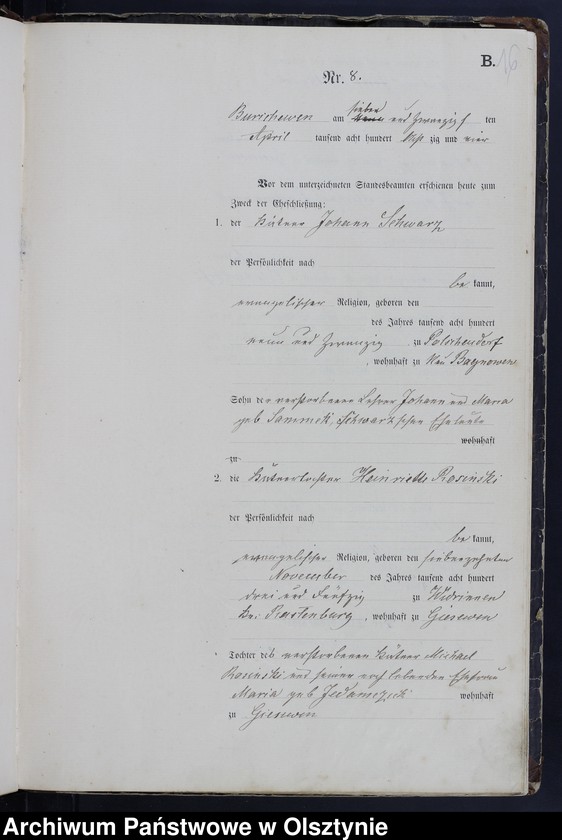 B.
16
Nr. 8.
Burschewen am sieben und zwanzigsten
April tausend acht hundert achtzig und vier
Vor dem unterzeichneten Standesbeamten erschienen heute zum
Zweck der Eheschließung:
1. der Kätner Johann Schwarz
der Persönlichkeit nach
be kannt,
evangelischer Religion, geboren den
des Jahres tausend acht hundert
neun und zwanzig zu
, wohnhaft zu Neu Bagnowen
Sohn des verstorbenen Lehrer Johann und Maria
geb Schwarz'schen Eheleute
wohnhaft
zu
2. die Kätnertochter Heinriette Rosinski
der Persönlichkeit nach
be kannt,
evangelischer Religion, geboren den siebenzehnten
November des Jahres tausend acht hundert
drei und fünfzig zu Widrinnen
Kr. Rastenburg , wohnhaft zu Giesewen
Tochter des verstorbenen Kätner Michael
Rosinski und seiner noch lebenden Ehefrau
Maria geb Jedamczick wohnhaft
zu Giesewen
Archiwum Państwowe w Olsztynie